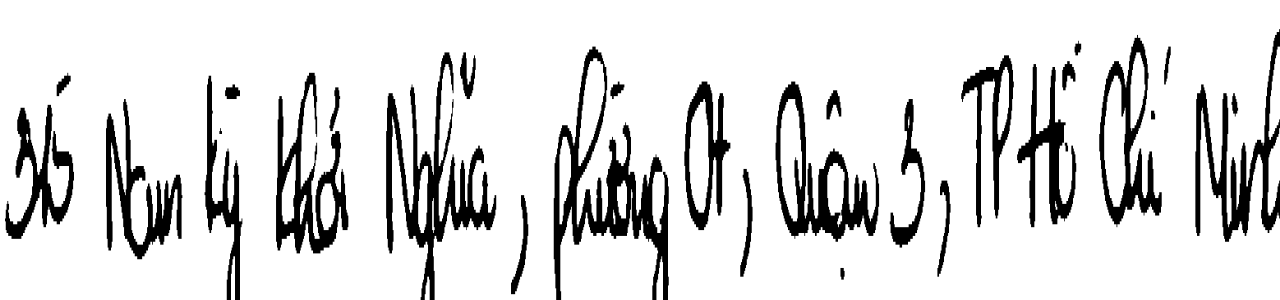 Nam Kỳ Khởi Nghĩa, phường 07, Quận 3, TP Hồ Chí Minh